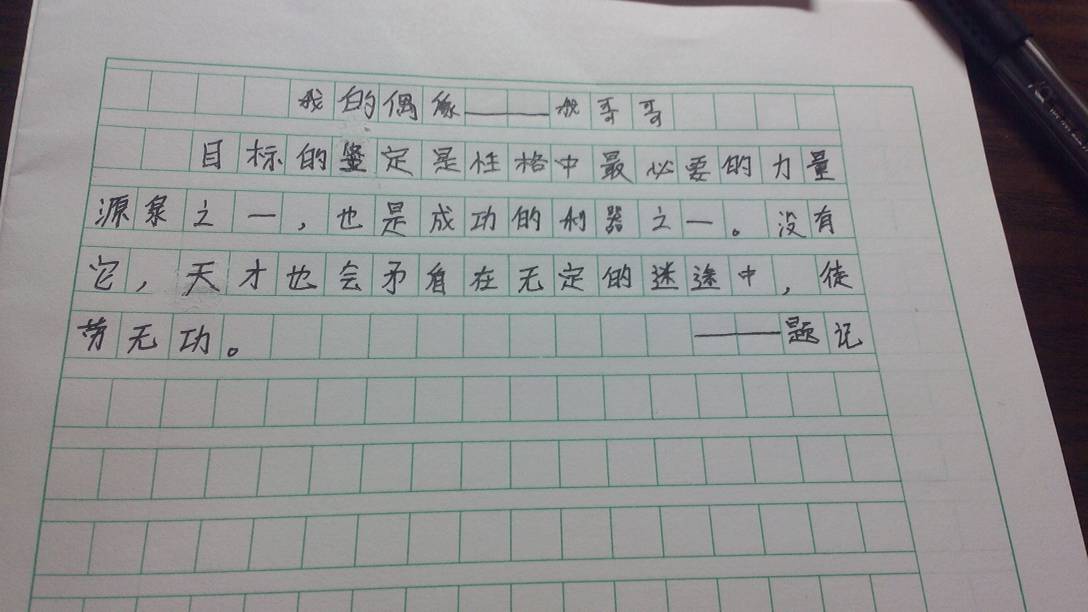 我的偶像——我哥哥
目标的鉴定是性格中最必要的力量
源泉之一，也是成功的利器之一。没有
它，天才也会矛盾在无定的迷途中，徒
劳无功。 ——题记